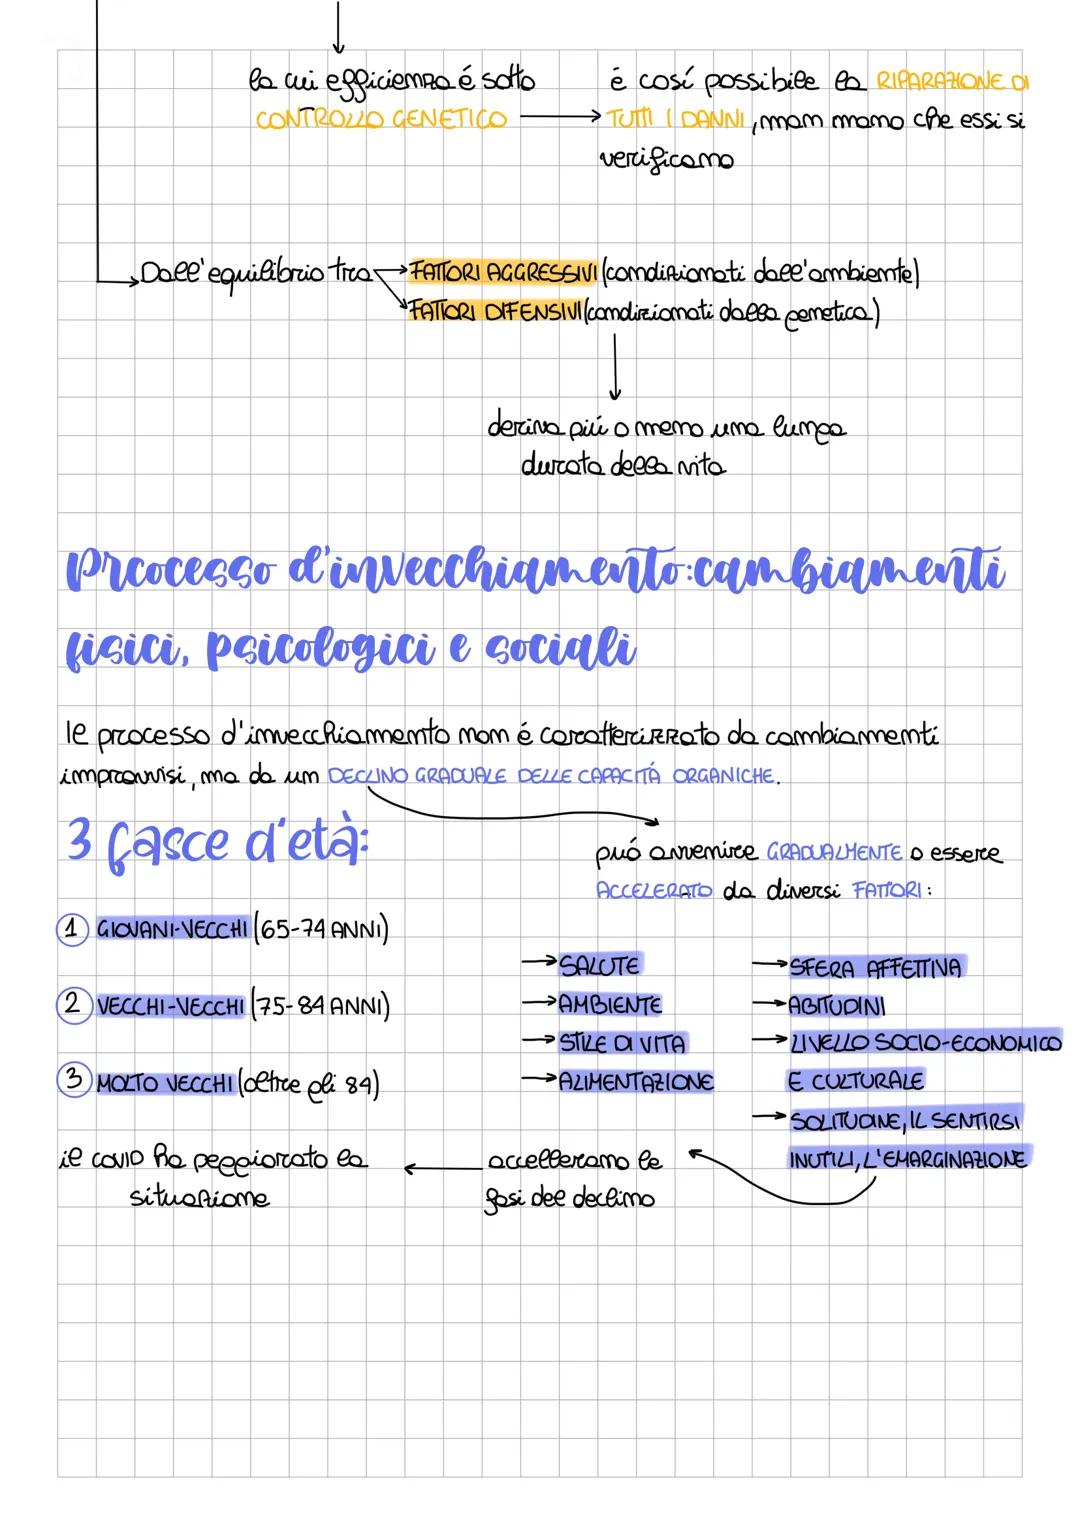 la cui efficienza é sotto
CONTROLLO GENETICO
é cosí possibile la RIPARAZIONE DI
TUTTI I DANNI, man mano che essi si
verificano
Dall'equilibrio tra
FATTORI AGGRESSIVI (condizionati dall'ambiente)
FATTORI DIFENSIVI (condizionati dalla genetica)
deriva piú o meno una lunga
durata della vita
Processo d'invecchiamento: cambiamenti
fisici, psicologici e sociali
Il processo d'invecchiamento non é caratterizzato da cambiamenti
improvvisi, ma da un DECLINO GRADUALE DELLE CAPACITÁ ORGANICHE.
3 fasce d'età:
puó avvenire GRADUALMENTE o essere
ACCELERATO da diversi FATTORI:
1 GIOVANI-VECCHI (65-74 ANNI)
2 VECCHI-VECCHI (75-84 ANNI)
3 MOLTO VECCHI (oltre gli 84)
SALUTE
AMBIENTE
STILE DI VITA
ALIMENTAZIONE
SFERA AFFETTIVA
ABITUDINI
LIVELLO SOCIO-ECONOMICO
E CULTURALE
SOLITUDINE, IL SENTIRSI
INUTILI, L'EMARGINAZIONE
accellerano le
fasi del declino
il COVID ha peggiorato la
situazione